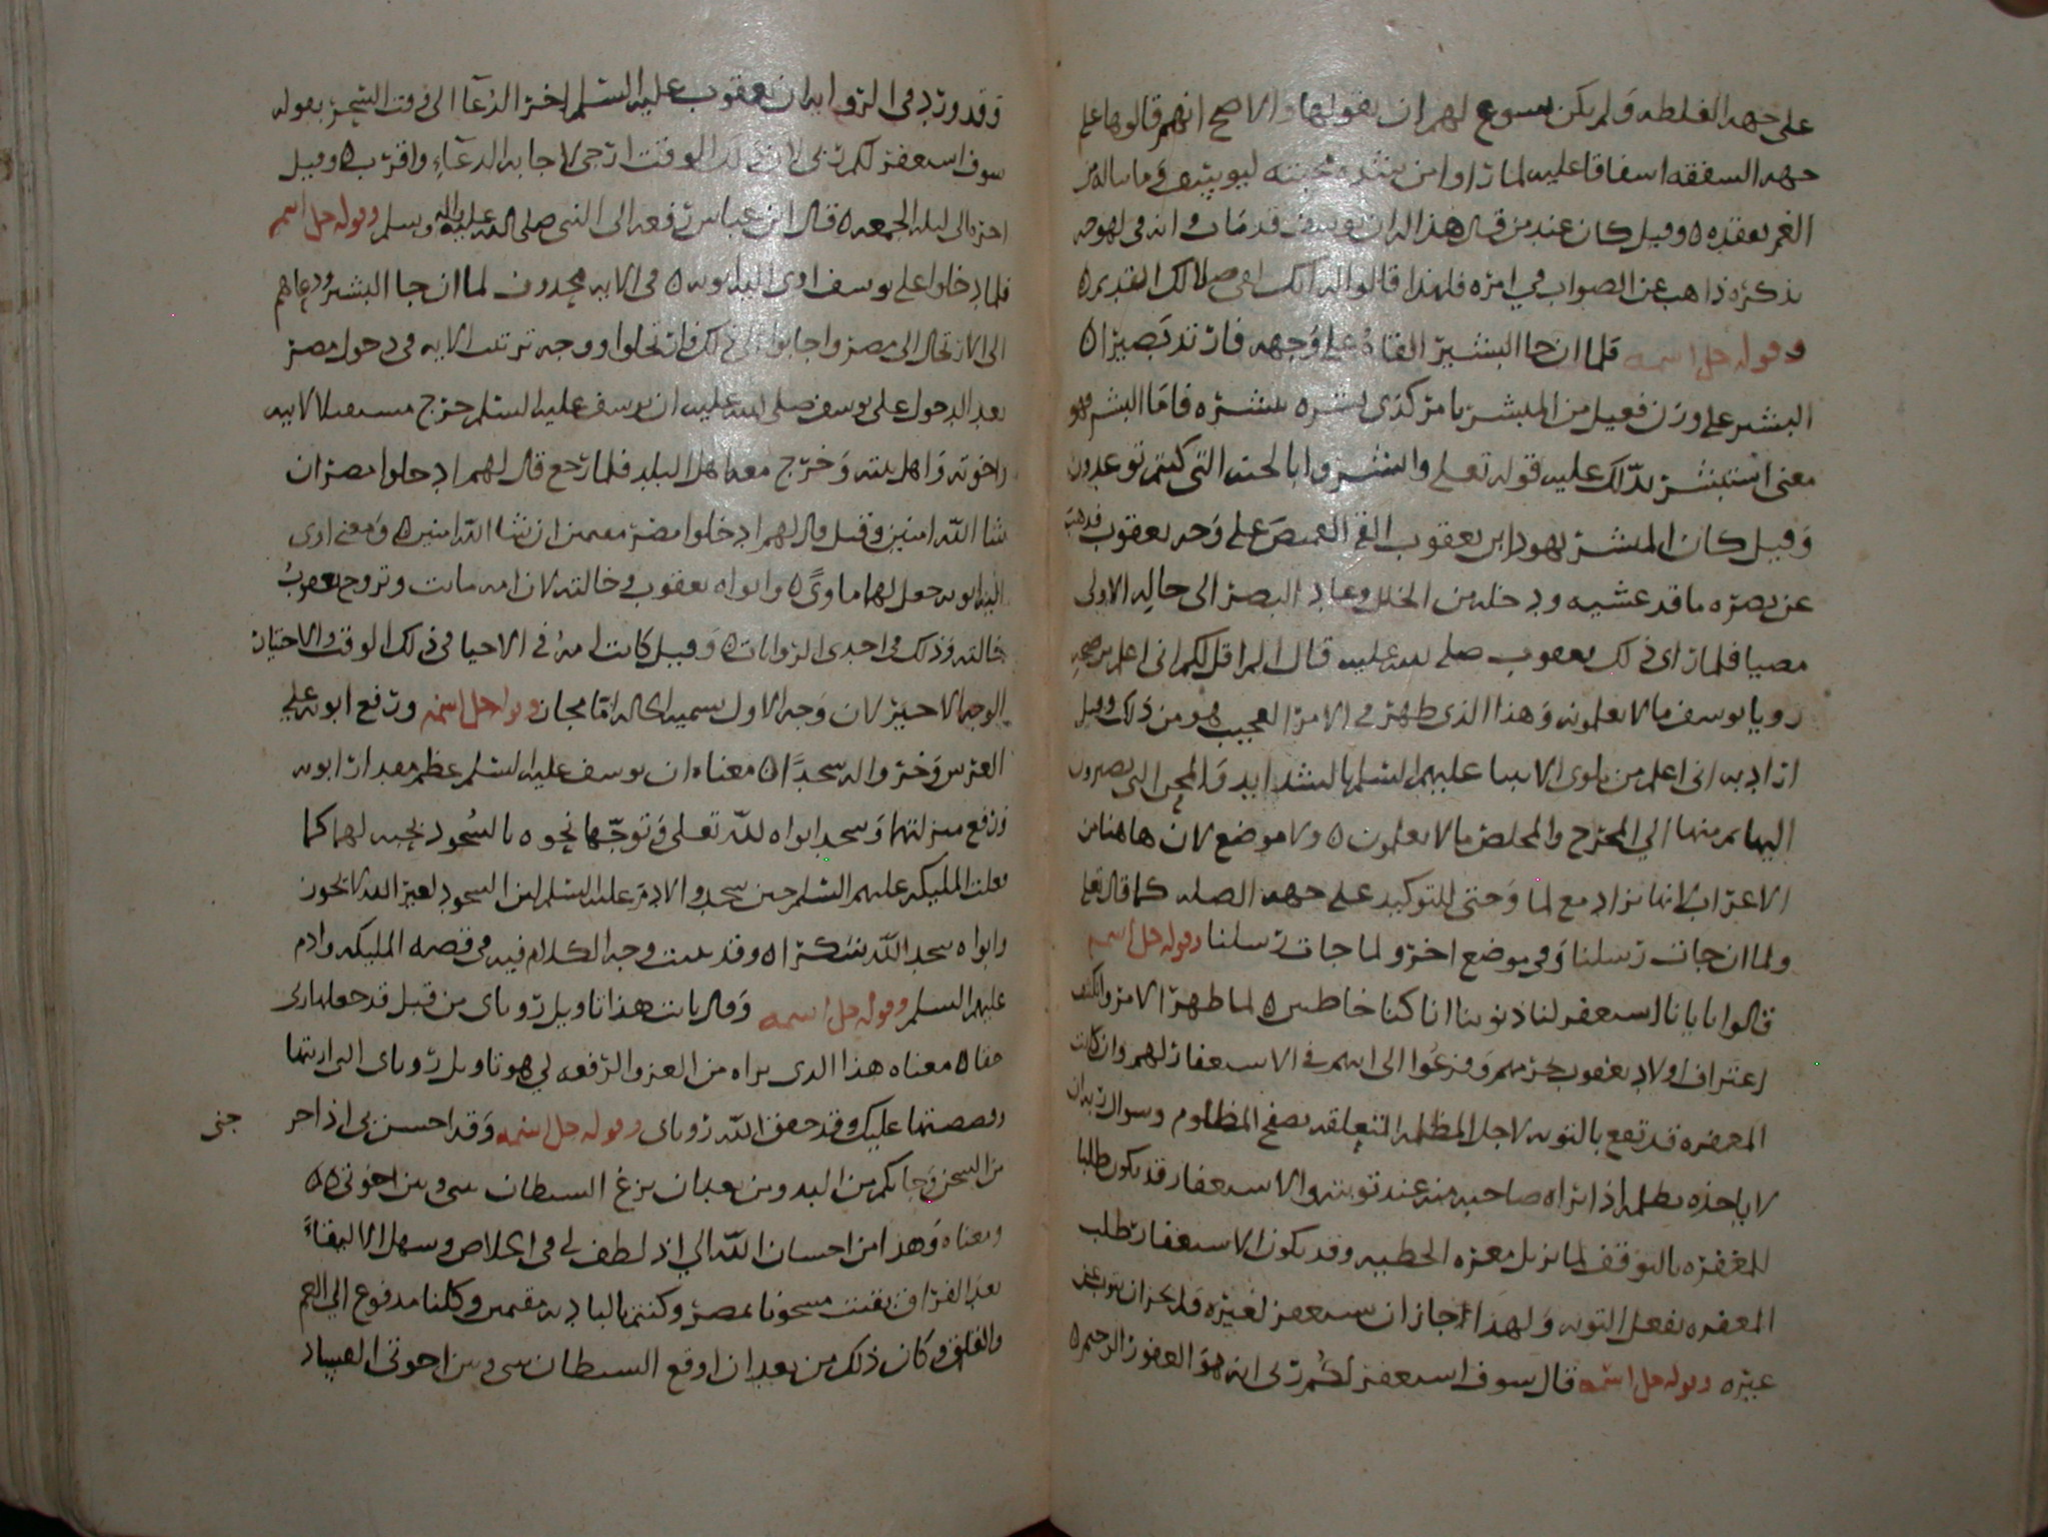 على جهه الغلطه ولم يكن يسوع لهم ان يقولها والاصح انهم قالوها على
جهه الشفقه اشفاقا عليه لما راوا من شده محبته ليوسف وما ناله من
الغم بفقده وقيل كان عند من قال هذا له ان يوسف قد مات وانه في لهوجه
بذكره ذاهب عن الصواب في امره فلهذا قالوا انك لفي ضلالك القديم
وقوله جل اسمه فلما ان جا البشير القاه على وجهه فارتد بصيرا
البشير على وزن فعيل من المبشر بامر كذي بشره يبشره فاما البشر فهو
معنى استبشر يدلك عليه قوله تعلى وابشروا بالجنه التي كنتم توعدون
وقيل كان المبشر يهودا بن يعقوب القى القميص على وجه يعقوب فذهب
عن بصره ما قد غشيه ودخله من الخلل وعاد البصر الى حاله الاولى
مضيا فلما راى ذلك يعقوب صلى الله عليه قال الم اقل لكم اني اعلم من صحه
رويا يوسف ما لا يعلمونه وهذا الذي ظهر في الامر العجيب هو من ذلك وقيل
اراد به اني اعلم من بلوى الانبيا عليهم السلم بالشدايد والمحن التي يصيرون
اليها ثم منها الى المخرج والمخلص ما لا يعلمون ولا موضع لان هاهنا من
الاعراب لانها تزاد مع لما وحتى للتوكيد على جهه الصله كما قال تعلى
ولما ان جات رسلنا وفي موضع اخر ولما جات رسلنا وقوله جل اسمه
قالوا يا بانا استغفر لنا ذنوبنا انا كنا خاطين لما ظهر الامر وانكشف
اعترف اولاد يعقوب بجرمهم وفزعوا الى ابيهم في الاستغفار لهم وان كانت
المغفره قد تقع بالتوبه لاجل المظلمه المتعلقه بصفح المظلوم وسوال ربه ان
لا ياخذه بظلمه اذا تراه صاحبه منه عند توبته والاستغفار قد يكون طلبا
للمغفره بالتوقف لما يزيل معره الخطيه وقد يكون الاستغفار طلب
المغفره بفعل التوبه ولهذا جاز ان يستغفر لغيره ولم يجز ان يتوب عن
غيره وقوله جل اسمه قال سوف استغفر لكم ربي انه هو الغفور الرحيم
وقد ورد في الروايه ان يعقوب عليه السلم اخر الدعا الى وقت السحر بقوله
سوف استغفر لكم ربي لان ذلك الوقت ارجى لاجابه الدعاء واقرب وقيل
اخره الى ليله الجمعه قال ابن عباس رفعه الى النبي صلى الله عليه واله وسلم وقوله جل اسمه
فلما دخلوا على يوسف اوى اليه ابويه في الايه محذوف لما ان جا البشير ودعاهم
الى الارتحال الى مصر واجابوا الى ذلك فارتحلوا ووجه ترتيب الايه في دخول مصر
بعد الدخول على يوسف صلى الله عليه ان يوسف عليه السلم خرج مستقبلا لابيه
واخوته واهل بيته وخرج معه اهل البلد فلما رجع قال لهم ادخلوا مصر ان
شا الله امنين وقيل قال لهم ادخلوا مصر مقيمين ان شا الله امنين ومعنى اوى
اليه ابويه جعل لهما ماوى وابواه يعقوب وخالته لان امه ماتت وتزوج يعقوب
خالته وذلك في احدى الروايات وقيل كانت امه في الاحيا في ذلك الوقت والاختيار
الوجه الاخير لان وجه الاول تسميه الخاله اما مجاز وقوله جل اسمه ورفع ابويه على
العرش وخروا له سجدا معناه ان يوسف عليه السلم عظم مقدار ابويه
ورفع منزلتهما وسجد ابواه لله تعلى وتوجها نحوه بالسجود تحيه لهما كما
فعلت المليكه عليهم السلم حين سجدوا لادم عليه السلم لان السجود لغير الله لا يجوز
وابواه سجدا لله شكرا وقد بينت وجه الكلام فيه في قصه المليكه وادم
عليهم السلم وقوله جل اسمه وقال يا ابت هذا تاويل روياي من قبل قد جعلها ربي
حقا معناه هذا الذي تراه من العز والرفعه لي هو تاويل روياي التي ارايتها
وقصصتها عليك وقد حقق الله روياي وقوله جل اسمه وقد احسن بي اذ اخر
جني
من السجن وجا بكم من البدو من بعد ان نزغ الشيطان بيني وبين اخوتي
ومعناه وهذا من احسان الله الي اذ لطف لي في الخلاص وسهل الالتقاء
بعد الفراق بقيت مسجونا بمصر وكنتم بالباديه مقيمين وكلنا مدفوع الى الغم
والقلق وكان ذلك من بعد ان اوقع الشيطان بيني وبين اخوتي الفساد